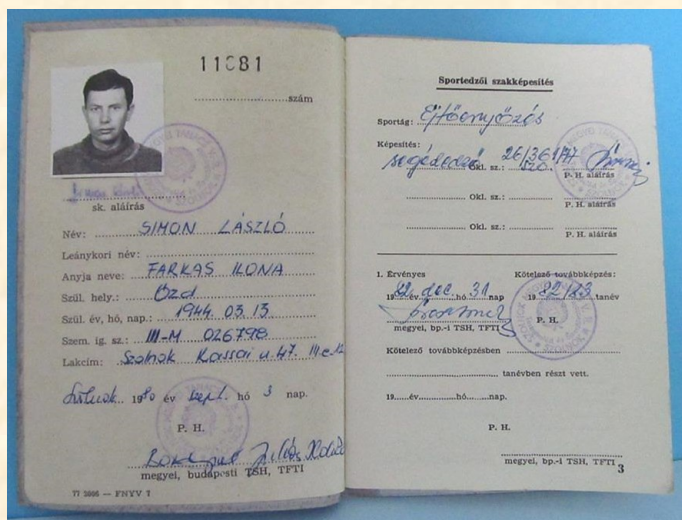 11081
....................szám
sk. aláírás
Név: SIMON LÁSZLÓ
Leánykori név:
Anyja neve: FARKAS ILONA
Szül. hely.: Ózd
Szül. év, hó, nap.: 1944. 03. 13
Szem. ig. sz.: III-M 026798
Lakcím: Szolnok Kassai u. 47.
Szolnok 1980 év szept. hó 3 nap.
P. H.
megyei, budapesti TSH, TFTI
TI 5806 — FNYV 7
Sportedzői szakképesítés
Sportág: Ejtőernyőzés
Képesítés:
segédedző Okl. sz.: 26/361/77
P. H. aláírás
Okl. sz.:
P. H. aláírás
Okl. sz.:
P. H. aláírás
1. Érvényes Kötelező továbbképzés:
19 év dec hó 31 nap 1982/83 tanév
P. H.
megyei, bp.-i TSH, TFTI
Kötelező továbbképzésben
tanévben részt vett.
19......év............hó.......nap.
P. H.
megyei, bp.-i TSH, TFTI
3